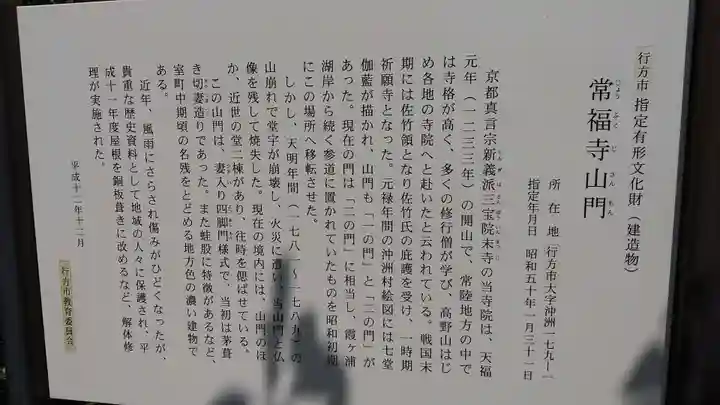 行方市 指定有形文化財（建造物）
常福寺山門
じょうふくじさんもん
所在地 行方市大字沖洲一七九ー一
指定年月日 昭和五十年一月三十一日
京都真言宗新義派三宝院末寺の当寺院は、天福
元年（一二三三年）の開山で、常陸地方の中で
は寺格が高く、多くの修行僧が学び、高野山はじ
め各地の寺院へと赴いたと云われている。戦国末
期には佐竹領となり佐竹氏の庇護を受け、一時期
祈願寺となった。元禄年間の沖洲村絵図には七堂
伽藍が描かれ、山門も「一の門」と「二の門」が
あった。現在の門は「二の門」に相当し、霞ヶ浦
湖岸から続く参道に置かれていたものを昭和初期
にこの場所へ移転させた。
しかし、天明年間（一七八一～一七八九）の
山崩れで堂宇が崩壊し、火災に遭い、当山門と仏
像を残して焼失した。現在の境内には、山門のほ
か、近世の堂二棟があり、往時を偲ばせている。
この山門は、妻入り四脚門様式で、当初は茅葺
き切妻造りであった。また蛙股に特徴があるなど、
室町中期頃の名残をとどめる地方色の濃い建物で
ある。
近年、風雨にさらされ傷みがひどくなったが、
貴重な歴史資料として地域の人々に保護され、平
成十一年度屋根を銅板葺きに改めるなど、解体修
理が実施された。
平成十二年十二月
行方市教育委員会